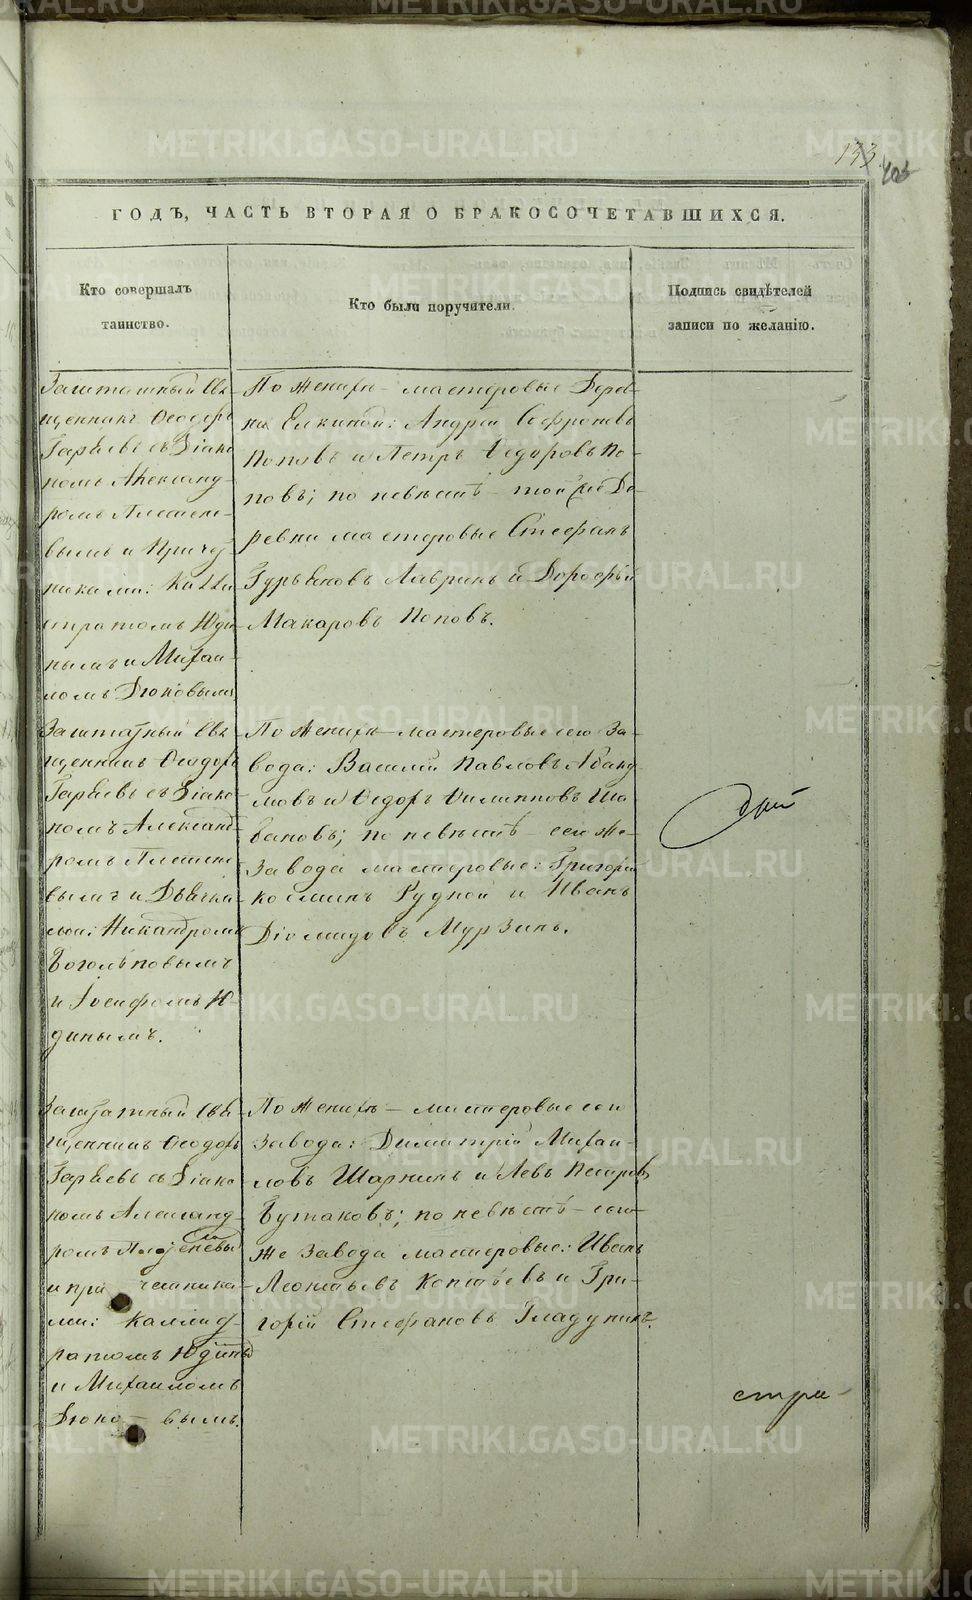 133
403
ГОДЪ, ЧАСТЬ ВТОРАЯ О БРАКОСОЧЕТАВШИХСЯ.
Кто совершалъ
таинство.
Кто были поручители.
Подпись свидѣтелей
записи по желанію.
Заштатный Свя-
щенникъ Ѳеодоръ
съ Діако-
номъ Александ-
ромъ
вымъ и Причет-
никами: Калли-
стратомъ Юди-
нымъ и Михаи-
ломъ Дюковымъ
По женихѣ – мастеровые Дерев-
ни Елкиной: Андрей Софроновъ
Поповъ и Петръ Ѳедоровъ По-
повъ; по невѣстѣ – той же Де-
ревни мастеровые Стефанъ
Гурьяновъ Лавринъ и Дорофей
Макаровъ Поповъ.
Заштатный Свя-
щенникъ Ѳеодоръ
съ Діако-
номъ Александ-
ромъ
вымъ и Дьячка-
ми: Никандромъ
Боголѣповымъ
и Іосифомъ Ю-
динымъ.
По женихѣ – мастеровые сего За-
вода: Василій Павловъ
и Ѳедоръ Филипповъ Ша-
бановъ; по невѣстѣ – сего же
Завода мастеровые: Григорій
Козминъ Рудной и Иванъ
Діомидовъ Мурзинъ.
дней
Заштатный Свя-
щенникъ Ѳеодоръ
съ Діако-
номъ Александ-
ромъ
и причетника-
ми: Каллист-
ратомъ Юдинымъ
и Михаиломъ
Дюко – вымъ.
По женихѣ – мастеровые сего
Завода: Димитрій Михаи-
ловъ Шаркинъ и Левъ Петровъ
Бутаковъ; по невѣстѣ – сего
же Завода мастеровые: Иванъ
Леонтьевъ Коптѣевъ и Гри-
горій Стефановъ Гладунинъ.
стра-
METRIKI.GASO-URAL.RU